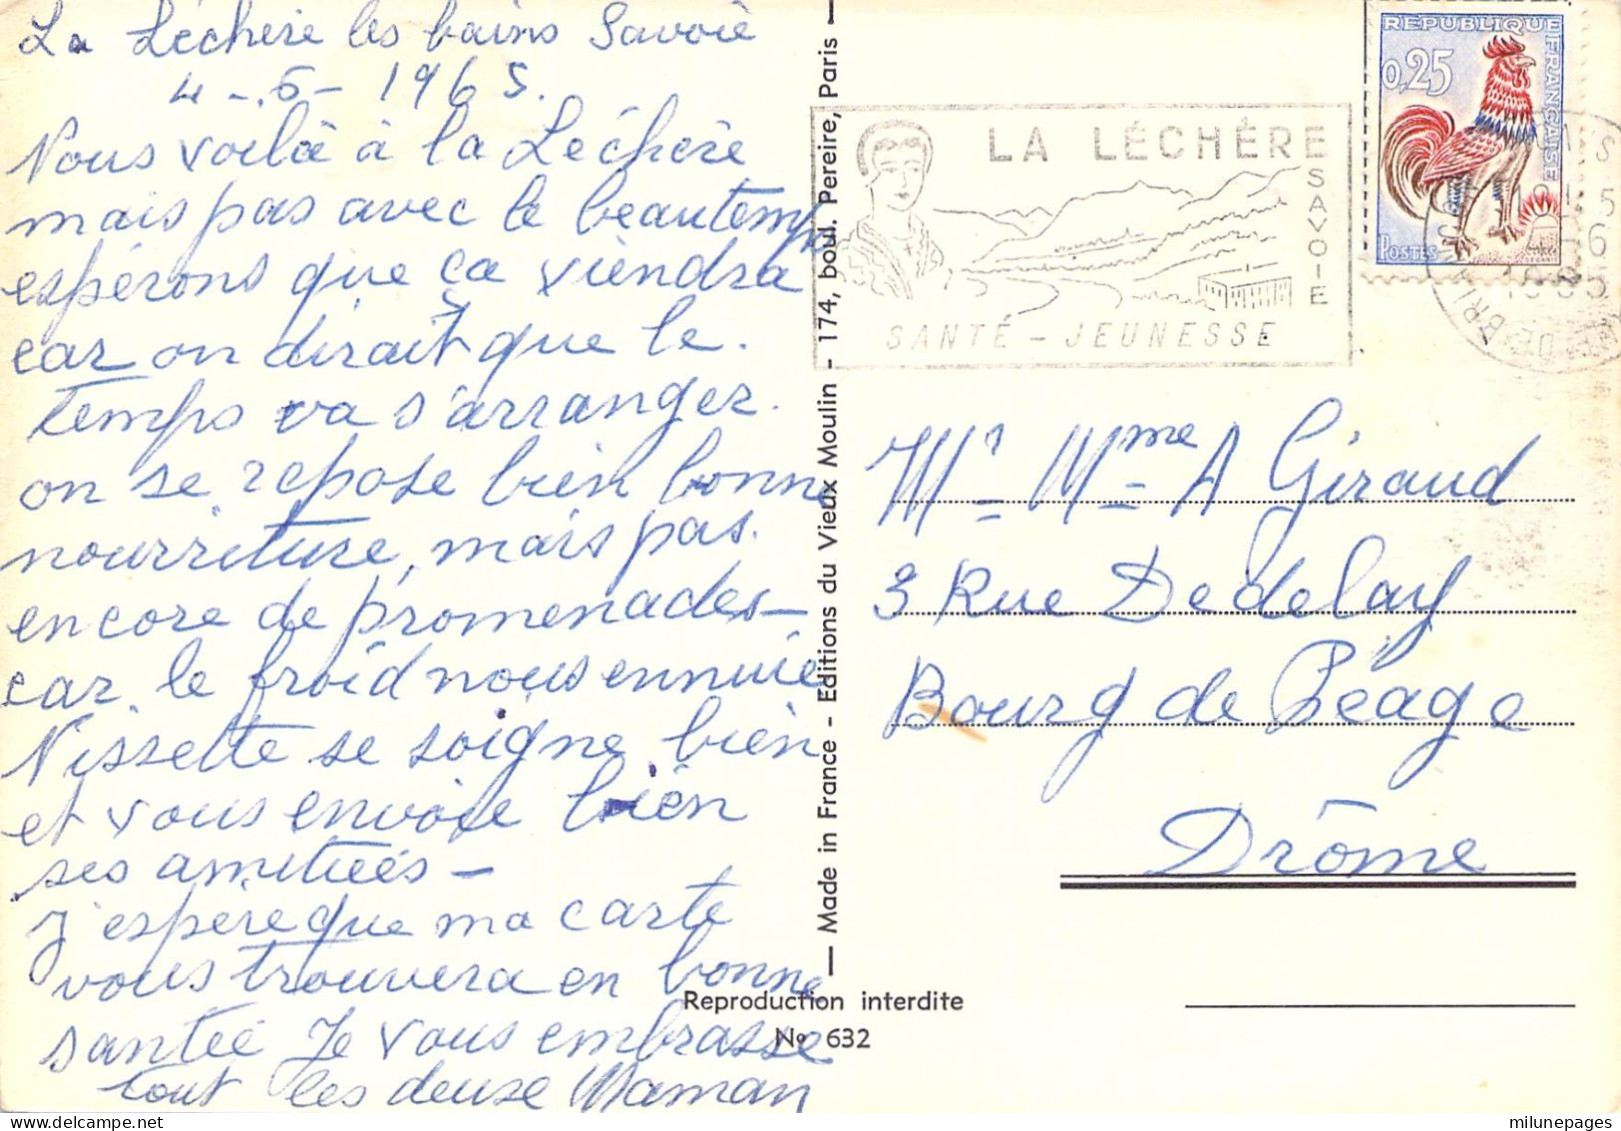 La Léchère les bains Savoie
4-6-1965.
Nous voilà à la Léchère
mais pas avec le beau temps
espérons que ça viendra
car on dirait que le.
temps va s'arranger.
on se repose bien bonne
nourriture, mais pas.
encore de promenades-
car le froid nous ennuie
Nissette se soigne bien
et vous envoie bien
ses amitiées-
J'espère que ma carte
vous trouvera en bonne
santée Je vous embrasse
tout les deuse Maman
Made in France - Editions du Vieux Moulin - 174, boul. Pereire, Paris
Reproduction interdite
No 632
LA LÉCHÈRE
SAVOIE
SANTÉ - JEUNESSE
REPUBLIQUE FRANÇAISE
0,25
POSTES
DE BRI
Mr Mme A Giraud
3 Rue Dedelay
Bourg de Péage
Drôme
milunepages